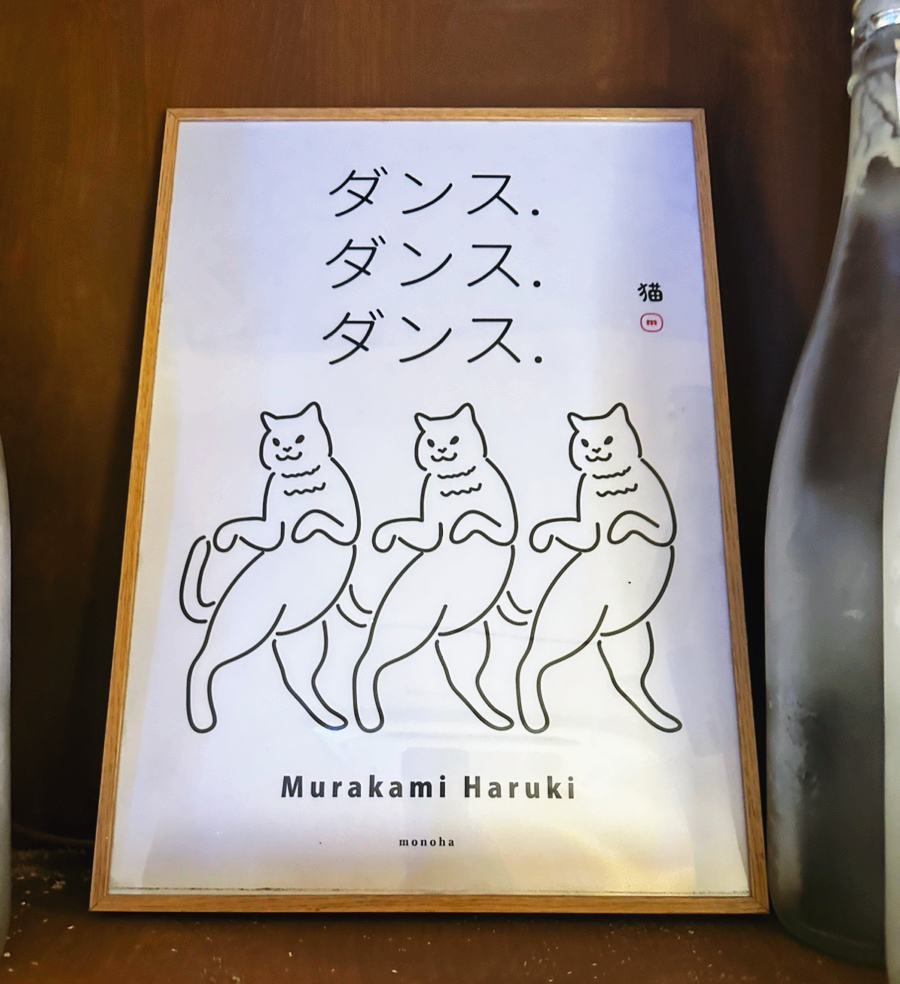 ダンス.
ダンス.
ダンス.
猫
m
Murakami Haruki
monoha